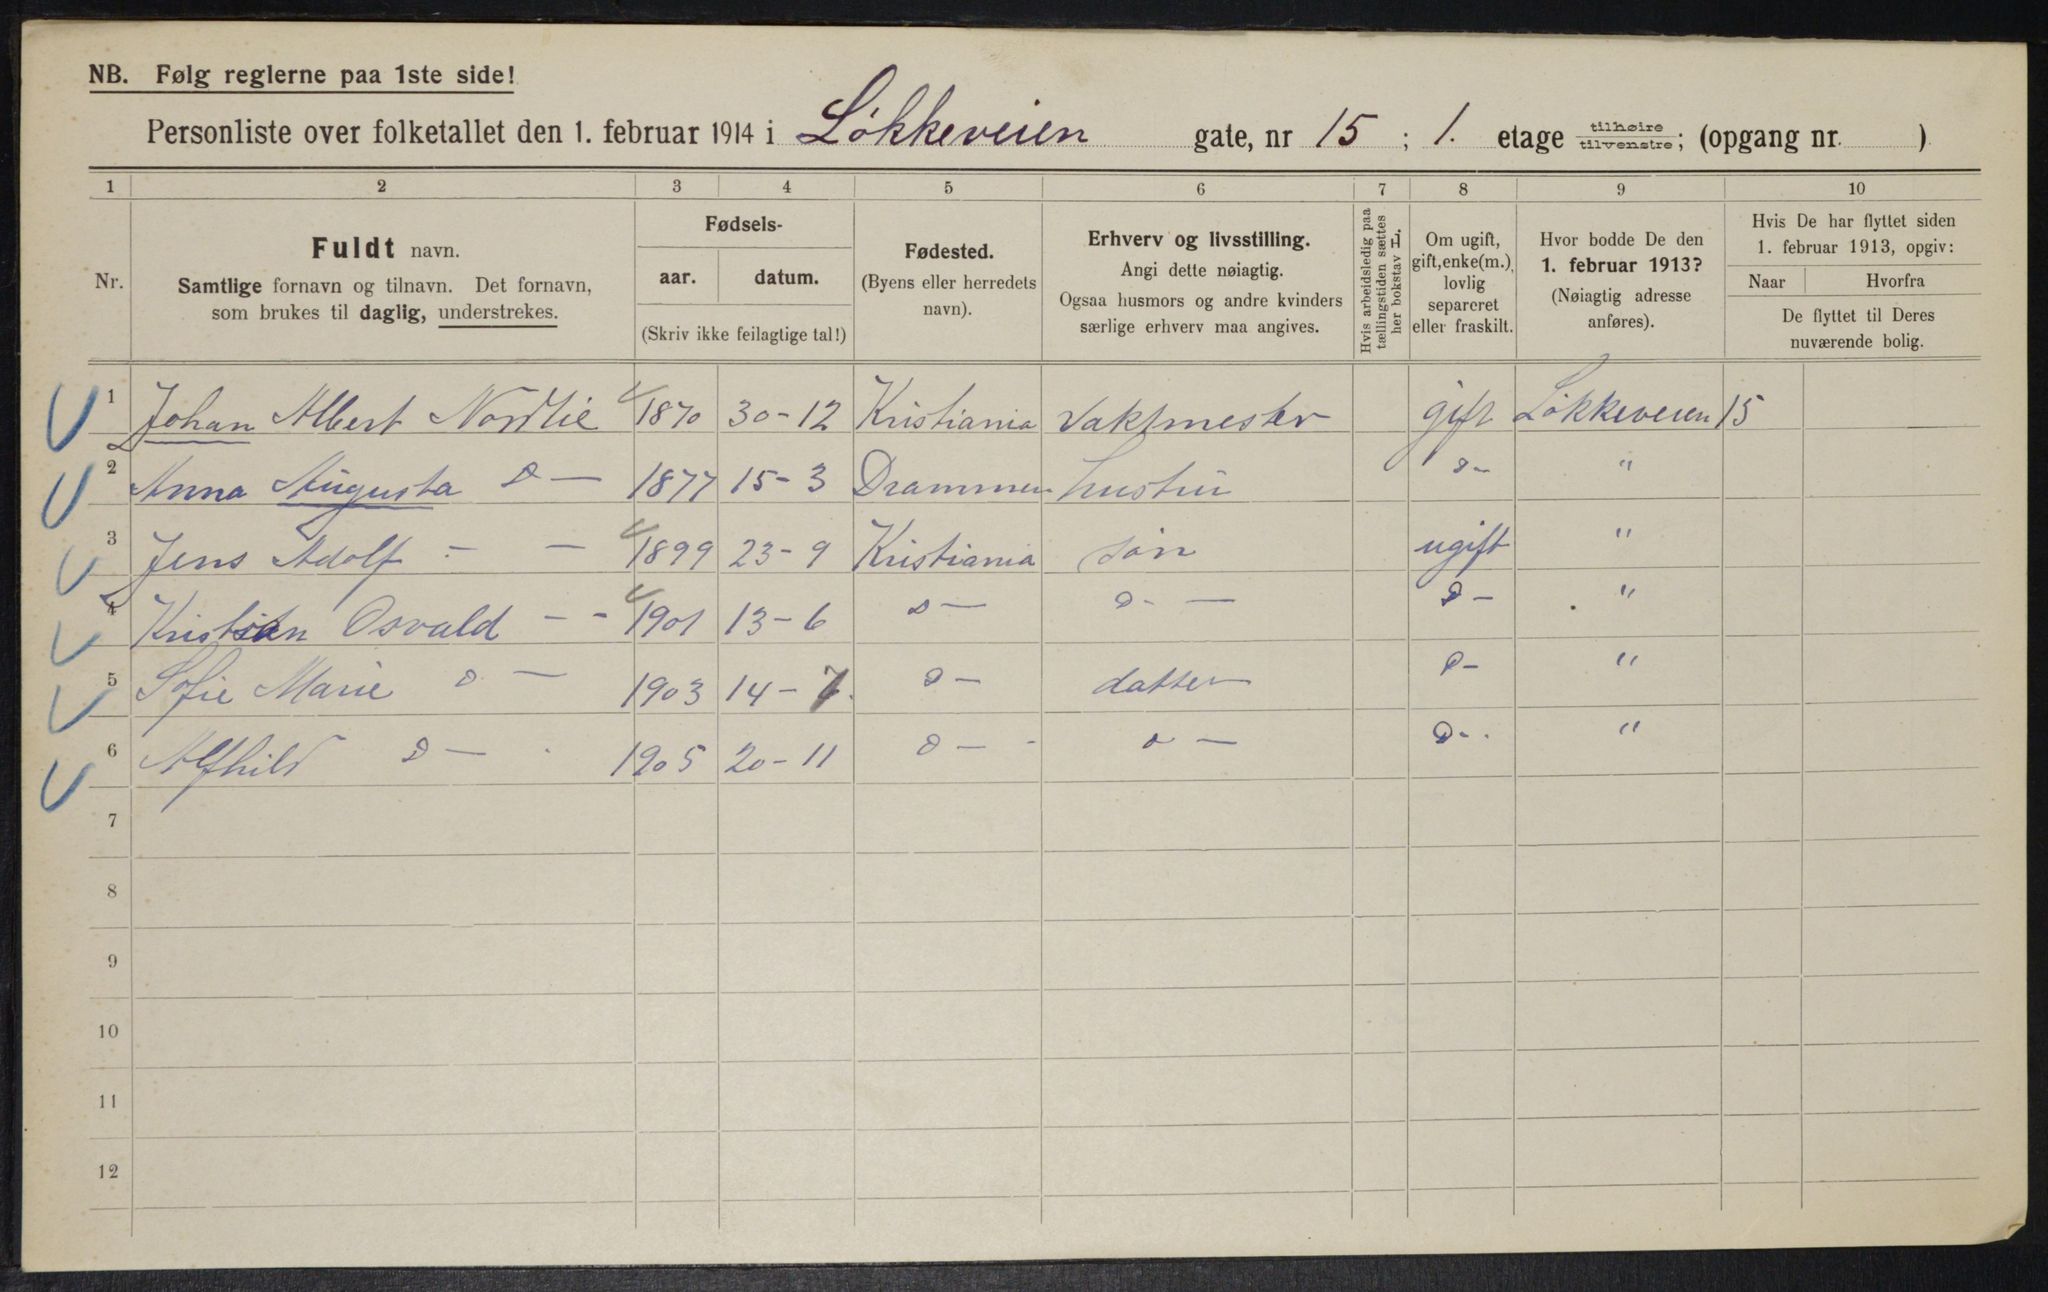 NB. Følg reglerne paa 1ste side!
Personliste over folketallet den 1. februar 1914 i Løkkeveien gate, nr 15 ; 1. etage tilhøire tilvenstre ; (opgang nr. )
1 2 3 4 5 6 7 8 9 10
Nr.
Fuldt navn.
Samtlige fornavn og tilnavn. Det fornavn,
som brukes til daglig, understrekes.
Fødsels-
aar. datum.
(Skriv ikke feilagtige tal!)
Fødested.
(Byens eller herredets
navn).
Erhverv og livsstilling.
Angi dette nøiagtig.
Ogsaa husmors og andre kvinders
særlige erhverv maa angives.
Hvis arbeidsledig paa
tællingstiden sættes
her bokstav L.
Om ugift,
gift, enke(m.),
lovlig
separeret
eller fraskilt.
Hvor bodde De den
1. februar 1913?
(Nøiagtig adresse
anføres).
Hvis De har flyttet siden
1. februar 1913, opgiv:
Naar Hvorfra
De flyttet til Deres
nuværende bolig.
1 Johan Albert Nordlie 1870 30-12 Kristiania Vaktmester gift Løkkeveien 15
2 Anna Augusta D — 1877 15-3 Drammen hustru D- "
3 Jens Adolf - — 1899 23-9 Kristiania søn ugift "
4 Kristian Osvald - - 1901 13-6 D — D- — D- "
5 Sofie Marie D — 1903 14-7. D — datter D- "
6 Alfhild D — 1905 20-11 D — - D — D- "
7
8
9
10
11
12